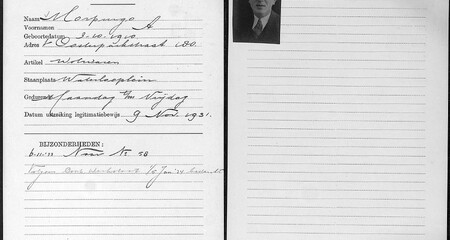 Naam Morpurgo
Voornamen A
Geboortedatum 3-10-1910
Adres Oosterparkstraat 180.
Artikel Wolwaren
Staanplaats Waterlooplein
Gedurende Maandag t/m Vrijdag
Datum uitreiking legitimatiebewijs 9 Nov. 1931.
BIJZONDERHEDEN:
Naar Nr 58
Volgens